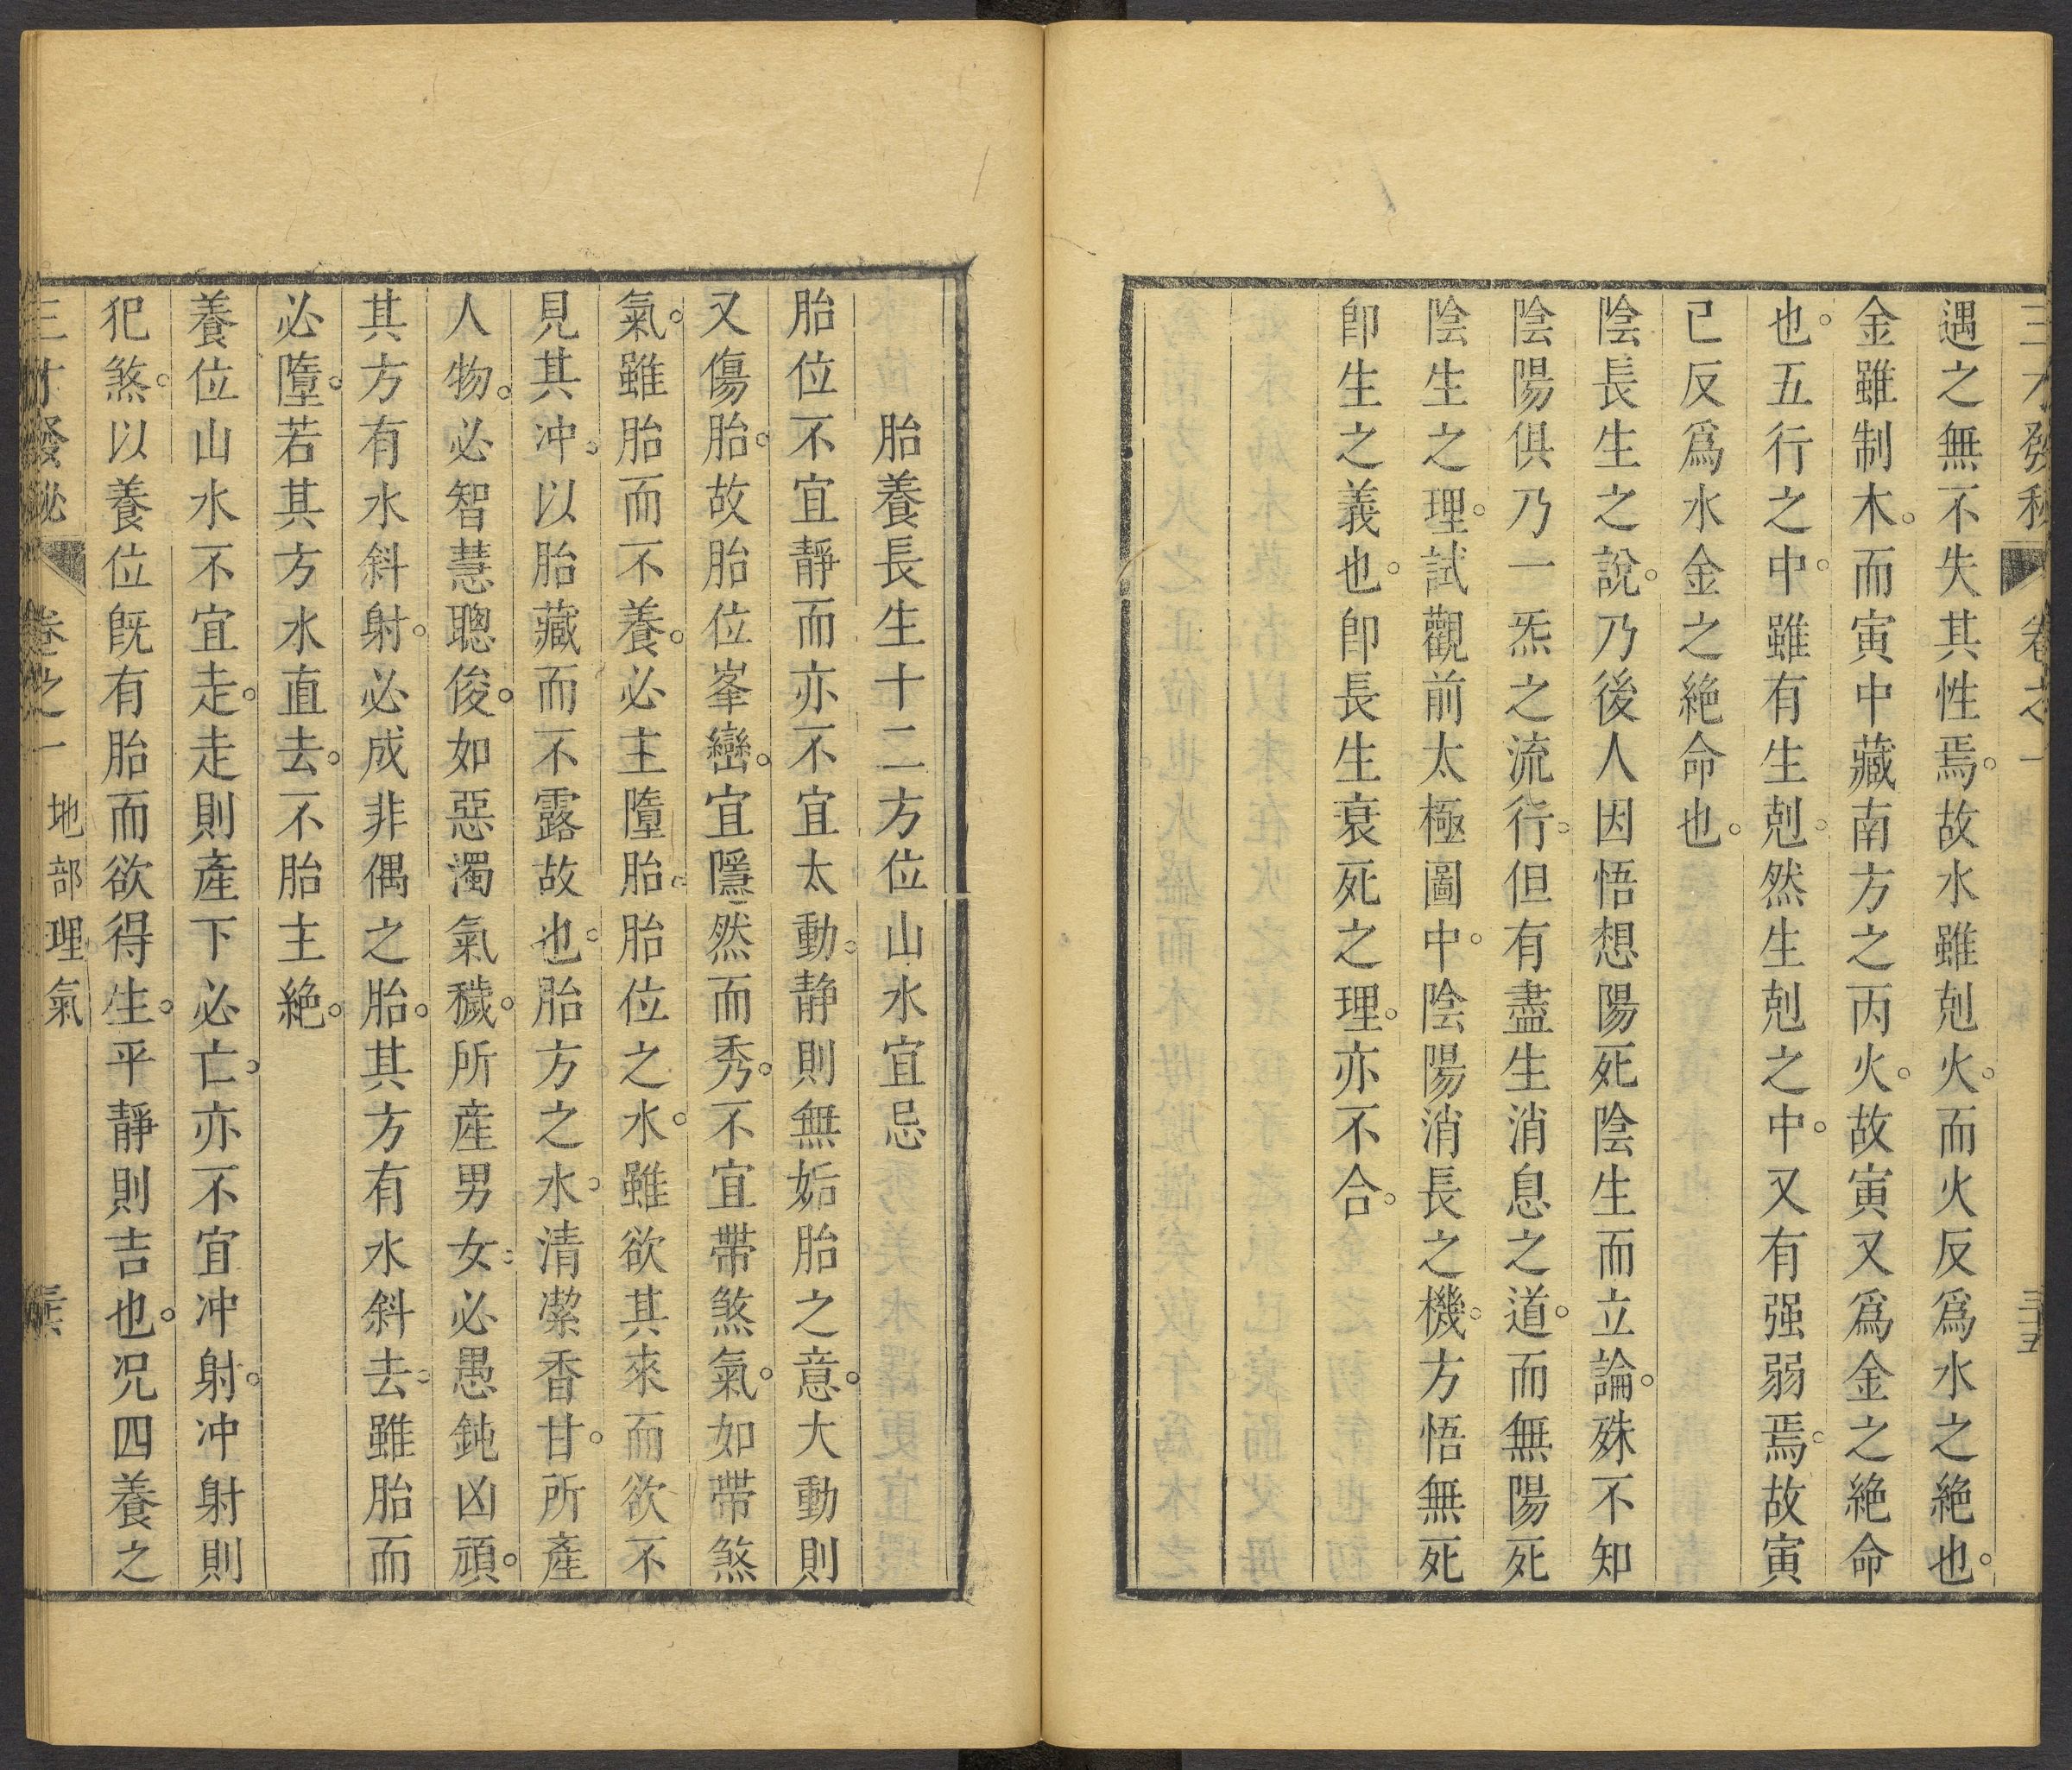 三才發秘 卷之一 三十五
遇之無不失其性焉。故水雖剋火。而火反爲水之絶也。
金雖制木。而寅中藏南方之丙火。故寅又爲金之絶命
也。五行之中。雖有生剋。然生剋之中。又有强弱焉。故寅
已反爲水金之絶命也。
陰長生之說。乃後人因悟想陽死陰生而立論。殊不知
陰陽俱乃一炁之流行。但有盡生消息之道。而無陽死
陰生之理。試觀前太極圖中。陰陽消長之機。方悟無死
卽生之義也。卽長生衰死之理。亦不合。
胎養長生十二方位山水宜忌
胎位不宜靜而亦不宜太動。静則無姤胎之意。大動則
又傷胎。故胎位峯巒。宜隱然而秀。不宜帶煞氣。如帶煞
氣。雖胎而不養。必主墮胎。胎位之水。雖欲其來而欲不
見其冲。以胎藏而不露故也。胎方之水。清潔香甘。所產
人物。必智慧聰俊。如惡濁氣穢。所産男女。必愚鈍凶頑。
其方有水斜射。必成非偶之胎。其方有水斜去。雖胎而
必墮。若其方水直去。不胎主絶。
養位山水不宜走。走則產下必亡。亦不宜冲射。冲射則
犯煞。以養位旣有胎而欲得生。平靜則吉也。况四養之
三才發秘 卷之一 地部 理氣